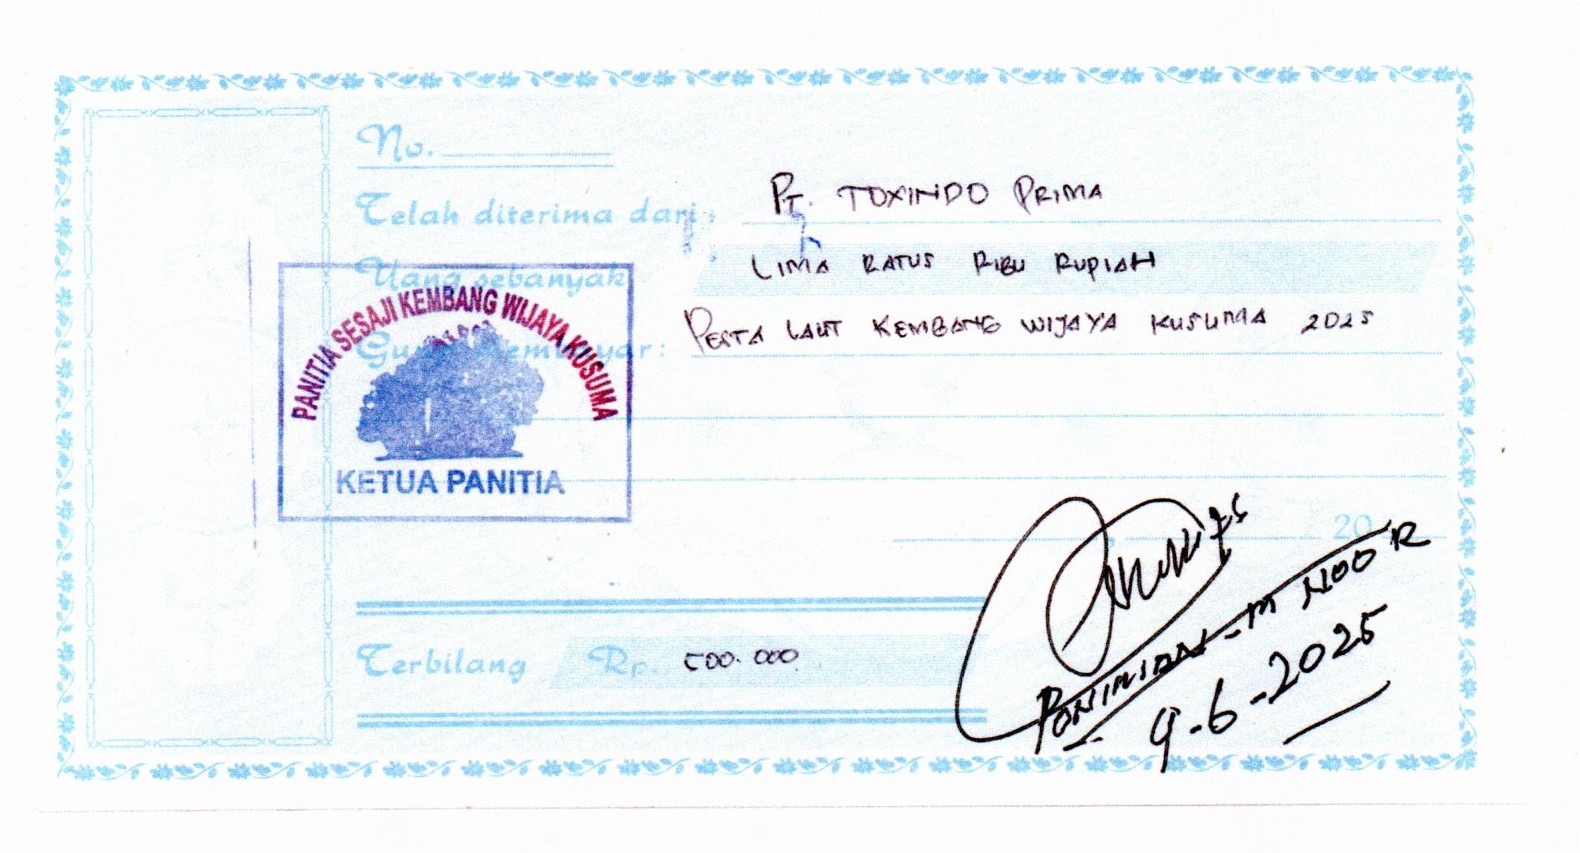 No.
Telah diterima dari : PT. TOXINDO PRIMA
Uang sebanyak LIMA RATUS RIBU RUPIAH
Guna membayar : PESTA LAUT KEMBANG WIJAYA KUSUMA 2025
PANITIA SESAJI KEMBANG WIJAYA KUSUMA
KETUA PANITIA
, 20
Terbilang Rp. 500.000
PONIMIDN-M NOOR
9-6-2025